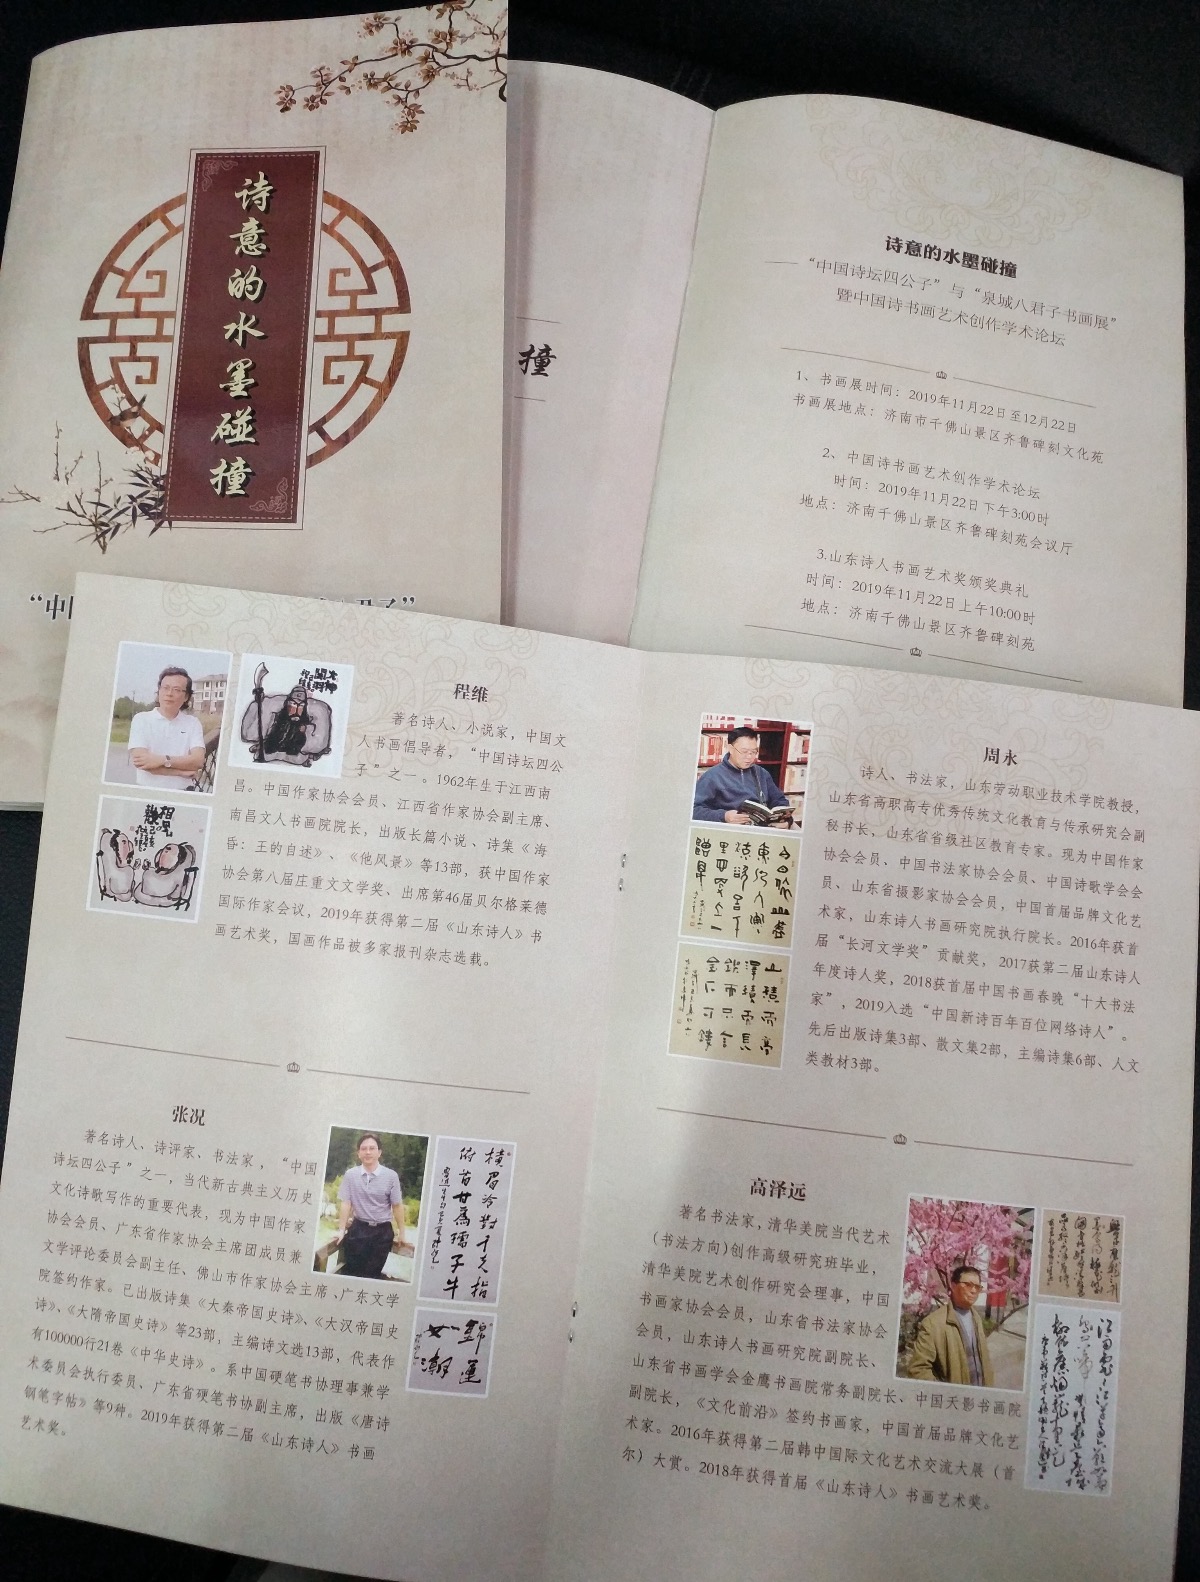 诗意的水墨碰撞
“中
撞
诗意的水墨碰撞
——“中国诗坛四公子”与“泉城八君子书画展”
暨中国诗书画艺术创作学术论坛
1、书画展时间：2019年11月22日至12月22日
书画展地点：济南市千佛山景区齐鲁碑刻文化苑
2、中国诗书画艺术创作学术论坛
时间：2019年11月22日下午3:00时
地点：济南千佛山景区齐鲁碑刻苑会议厅
3.山东诗人书画艺术奖颁奖典礼
时间：2019年11月22日上午10:00时
地点：济南千佛山景区齐鲁碑刻苑
程维
著名诗人、小说家，中国文
人书画倡导者，“中国诗坛四公
子”之一。1962年生于江西南
昌。中国作家协会会员、江西省作家协会副主席、
南昌文人书画院院长，出版长篇小说、诗集《海
昏：王的自述》、《他风景》等13部，获中国作家
协会第八届庄重文文学奖、出席第46届贝尔格莱德
国际作家会议，2019年获得第二届《山东诗人》书
画艺术奖，国画作品被多家报刊杂志选载。
张况
著名诗人、诗评家、书法家，“中国
诗坛四公子”之一，当代新古典主义历史
文化诗歌写作的重要代表，现为中国作家
协会会员、广东省作家协会主席团成员兼
文学评论委员会副主任、佛山市作家协会主席、广东文学
院签约作家。已出版诗集《大秦帝国史诗》、《大汉帝国史
诗》、《大隋帝国史诗》等23部，主编诗文选13部，代表作
有100000行21卷《中华史诗》。系中国硬笔书协理事兼学
术委员会执行委员、广东省硬笔书协副主席，出版《唐诗
钢笔字帖》等9种。2019年获得第二届《山东诗人》书画
艺术奖。
横眉冷对千夫指
俯首甘为孺子牛
周永
诗人、书法家，山东劳动职业技术学院教授，
山东省高职高专优秀传统文化教育与传承研究会副
秘书长，山东省省级社区教育专家。现为中国作家
协会会员、中国书法家协会会员、中国诗歌学会会
员、山东省摄影家协会会员，中国首届品牌文化艺
术家，山东诗人书画研究院执行院长。2016年获首
届“长河文学奖”贡献奖，2017获第二届山东诗人
年度诗人奖，2018获首届中国书画春晚“十大书法
家”，2019入选“中国新诗百年百位网络诗人”。
先后出版诗集3部、散文集2部，主编诗集6部、人文
类教材3部。
高泽远
著名书法家，清华美院当代艺术
（书法方向）创作高级研究班毕业，
清华美院艺术创作研究会理事，中国
书画家协会会员，山东省书法家协会
会员，山东诗人书画研究院副院长、
山东省书画学会金鹰书画院常务副院长、中国天影书画院
副院长，《文化前沿》签约书画家，中国首届品牌文化艺
术家。2016年获得第二届韩中国际文化艺术交流大展（首
尔）大赏。2018年获得首届《山东诗人》书画艺术奖。